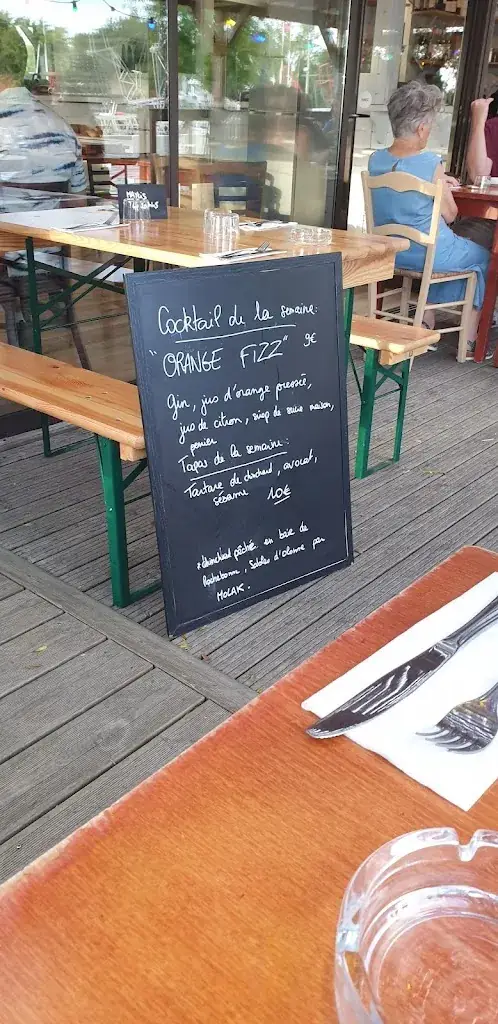 Cocktail de la semaine:
"ORANGE FIZZ" 9€
Gin, jus d'orange pressé,
jus de citron, sirop de sucre maison,
Tapas de la semaine:
Tartare de chinchard, avocat,
sésame 10€
*chinchard pêché en baie de
Rochebonne, Sables d'olonne par
MOLAK.